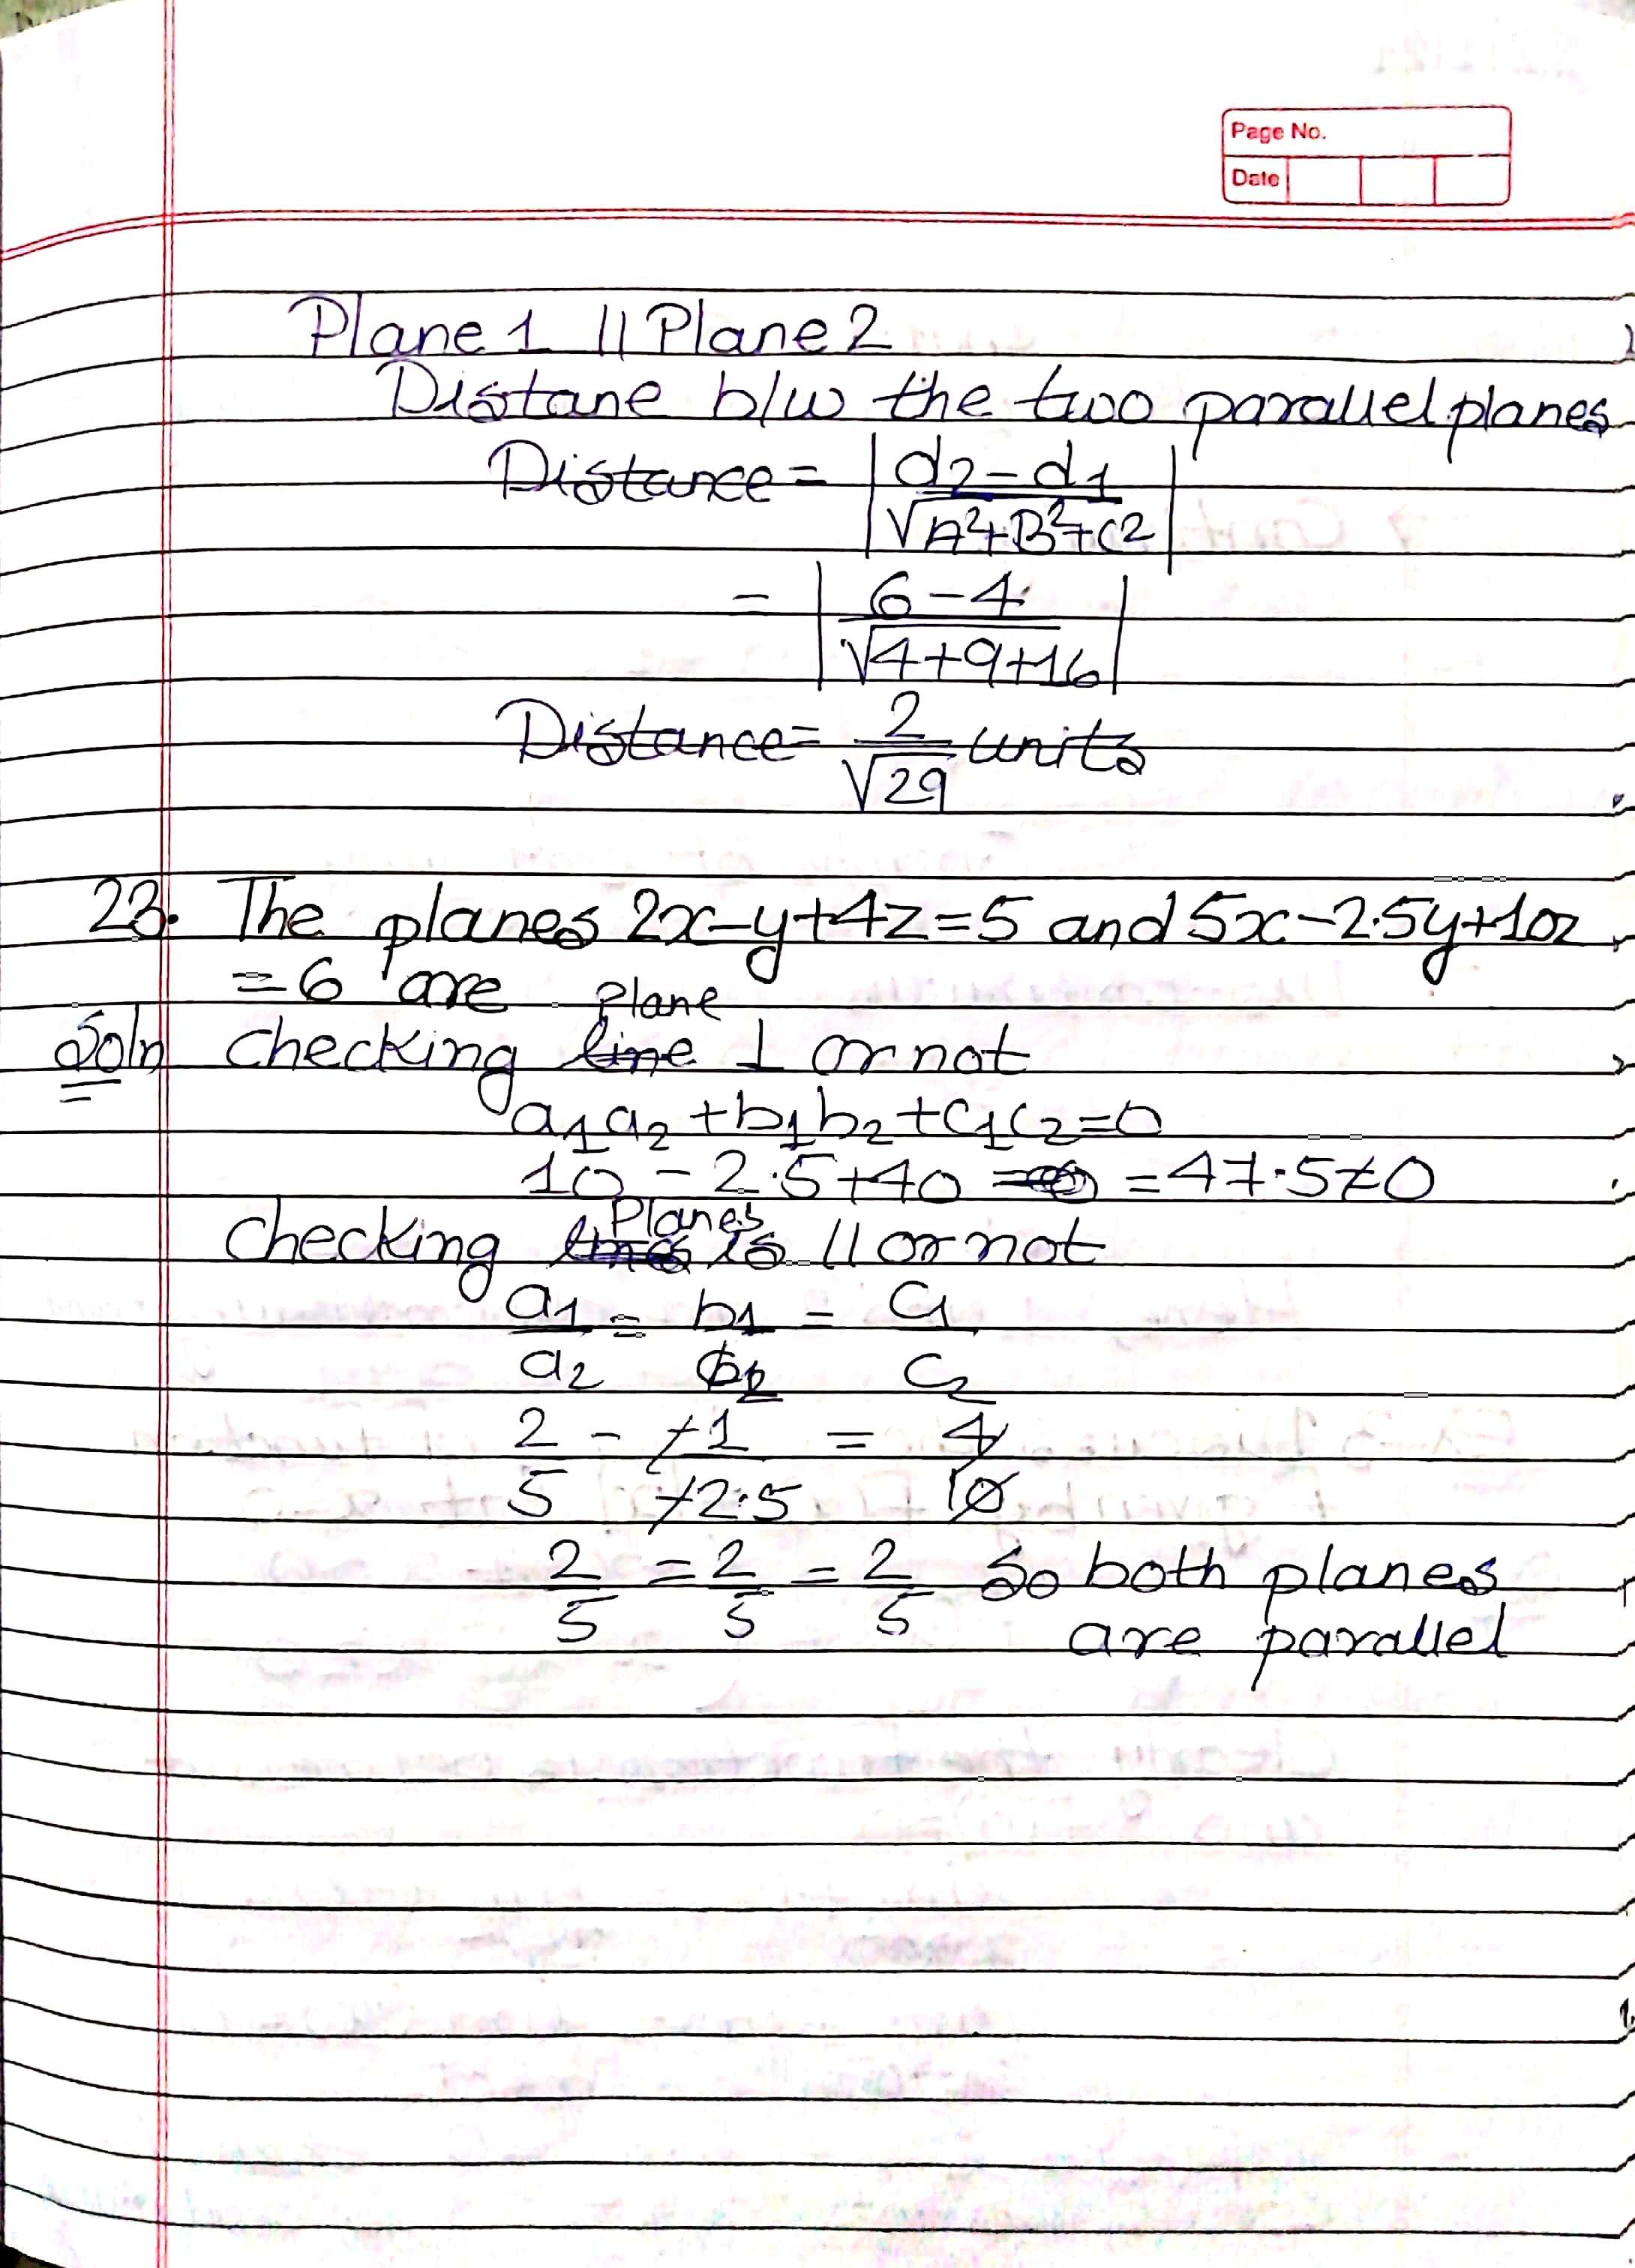 Page No.
Date
Plane 1 || Plane 2
Distane b/w the two parallel planes
Distance = | d2 - d1 / √A²+B²+C2 |
= | 6-4 / √4+9+16 |
Distance = 2/√29 units
23. The planes 2x-y+4z=5 and 5x-2.5y+10z
= 6 are
Soln checking plane ⊥ or not
a1a2 + b1b2 + c1c2 = 0
10 - 2.5 + 40 = 47.5 ≠ 0
checking Planes is || or not
a1/a2 = b1/b2 = c1/c2
2/5 - -1/-2.5 = 4/10
2/5 = 2/5 = 2/5 So both planes
are parallel